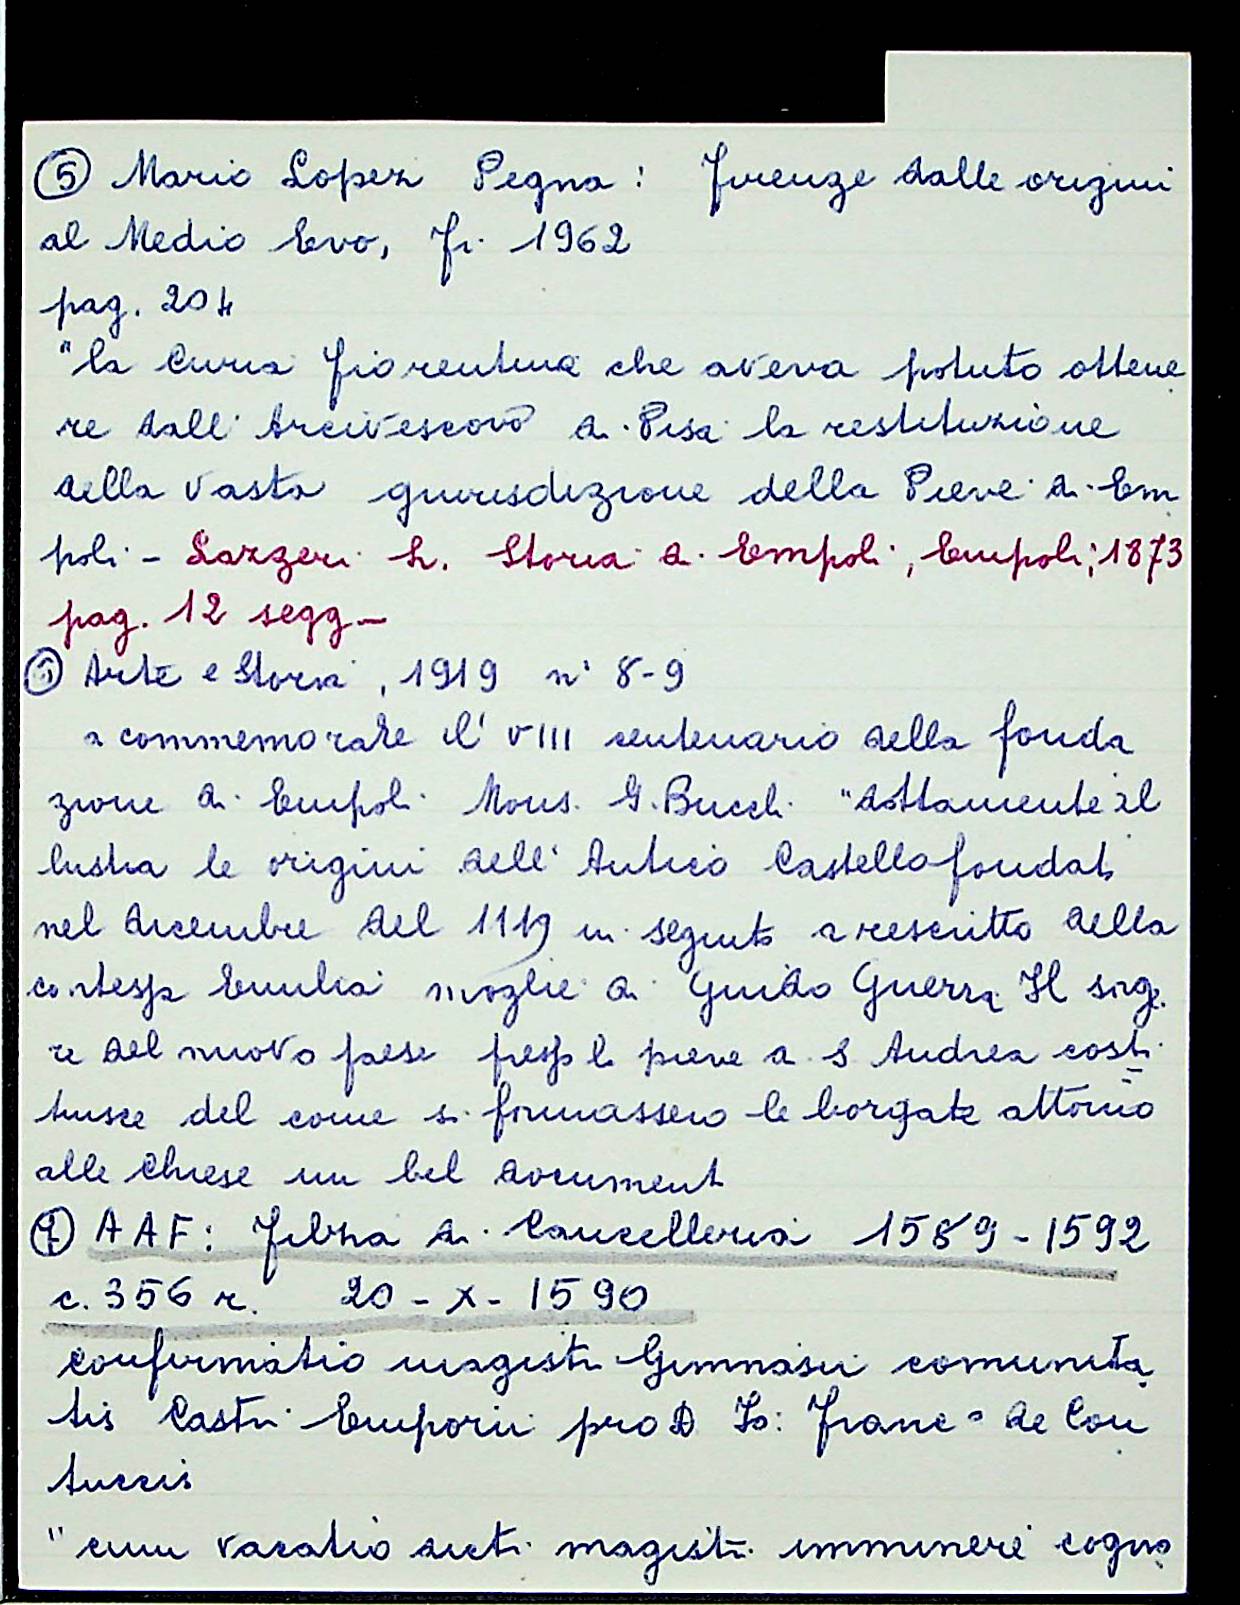 ⑤ Mario Lopez Pegna: Firenze dalle origini
al Medio Evo, Fi. 1962
pag. 204
"la Curia fiorentina che aveva potuto ottene
re dall' Arcivescovo di Pisa la restituzione
della vasta giurisdizione della Pieve di Em
poli - Lazzeri L. Storia di Empoli, Empoli, 1873
pag. 12 segg -
⑥ Arte e Storia, 1919 n° 8-9
a commemorare l' VIII centenario della fonda
zione di Empoli Mons. G. Bucchi "dottamente il
lustra le origini dell' Antico Castello fondato
nel dicembre del 1119 in seguito a rescritto della
contessa Emilia moglie di Guido Guerra Il sorge
re del nuovo paese presso la pieve a S Andrea costi
tuisce del come si formassero le borgate attorno
alle Chiese un bel document
⑦ AAF: Filza di Cancelleria 1589-1592
c. 356 r. 20-X-1590
confirmatio magistri Gimnasii comunita
tis Castri Emporii pro D Jo: Franc° de Con
tuccis
"cum vacatio dicti magistri imminere cogno